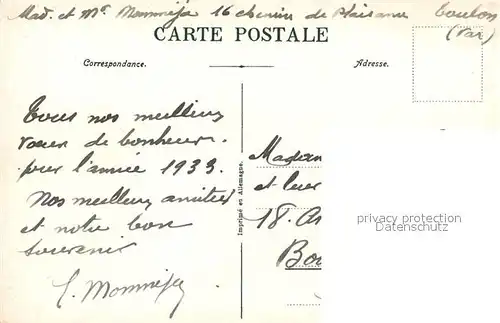 Mad. et Mr Mommeja 16 chemin de Plaisance Toulon
(Var)
CARTE POSTALE
Correspondance.
Adresse.
Tous nos meilleurs
voeux de bonheur.
pour l'année 1933.
Nos meilleurs amitiés
et notre bon
souvenir
Imprimé en Allemagne.
Madam
et leur
18. A
Bo
privacy protection
Datenschutz